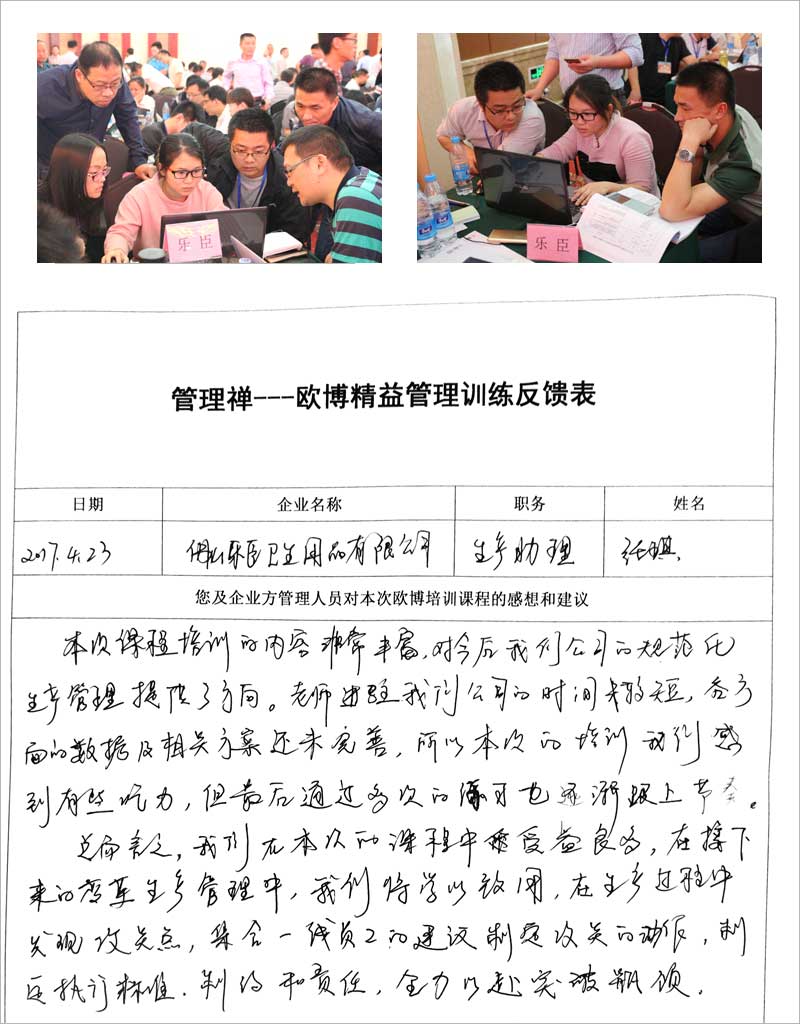 乐臣
乐臣
管理禅---欧博精益管理训练反馈表
日期 企业名称 职务 姓名
2017.4.23 佛山乐臣卫生用品有限公司 生产助理 张琪
您及企业方管理人员对本次欧博培训课程的感想和建议
本次课程培训的内容非常丰富,对今后我们公司的规范化
生产管理提供了方向。老师进驻我们公司的时间较短,各方
面的数据及相关方案还未完善,所以本次的培训我们感
到有些吃力,但最后通过多次的练习也逐渐跟上节奏。
总而言之,我们在本次的课程中受益良多,在接下
来的 生产管理中,我们将学以致用,在生产过程中
发现攻关点,集合一线员工的建议制定攻关的动作,制
定执行标准.制约和责任,全力以赴突破瓶颈。